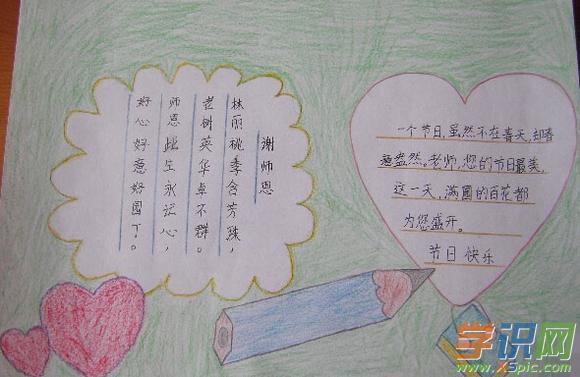 谢师恩
林丽桃季含芳,
老树英华卓不群。
师恩此生永记心,
好心好意好园丁。
一个节日,虽然不在春天,却春
意盎然。老师,您的节日最美,
这一天,满圆的百花都
为您盛开。
节日快乐
学识网
www.X5pic.com